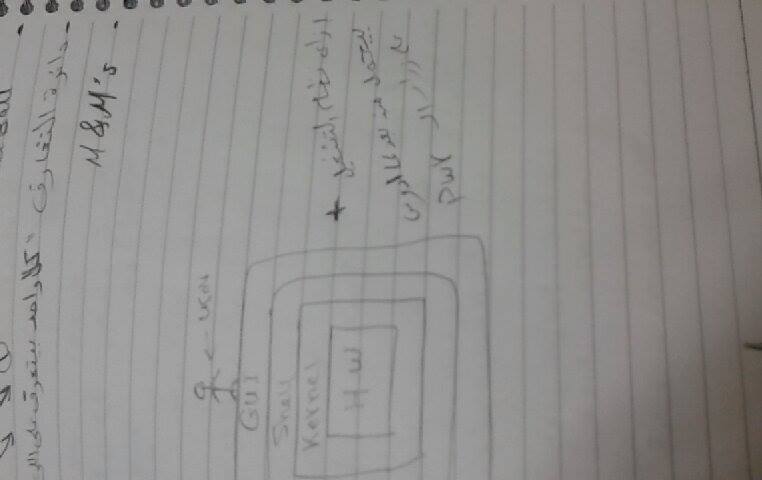 - دائرة التعارف "كل واحد بيتعرف على
- M&M's
user
GUI
Shell
Kernel
HW
نظام التشغيل
بيحمل من بعد
على زرار الـ PWR